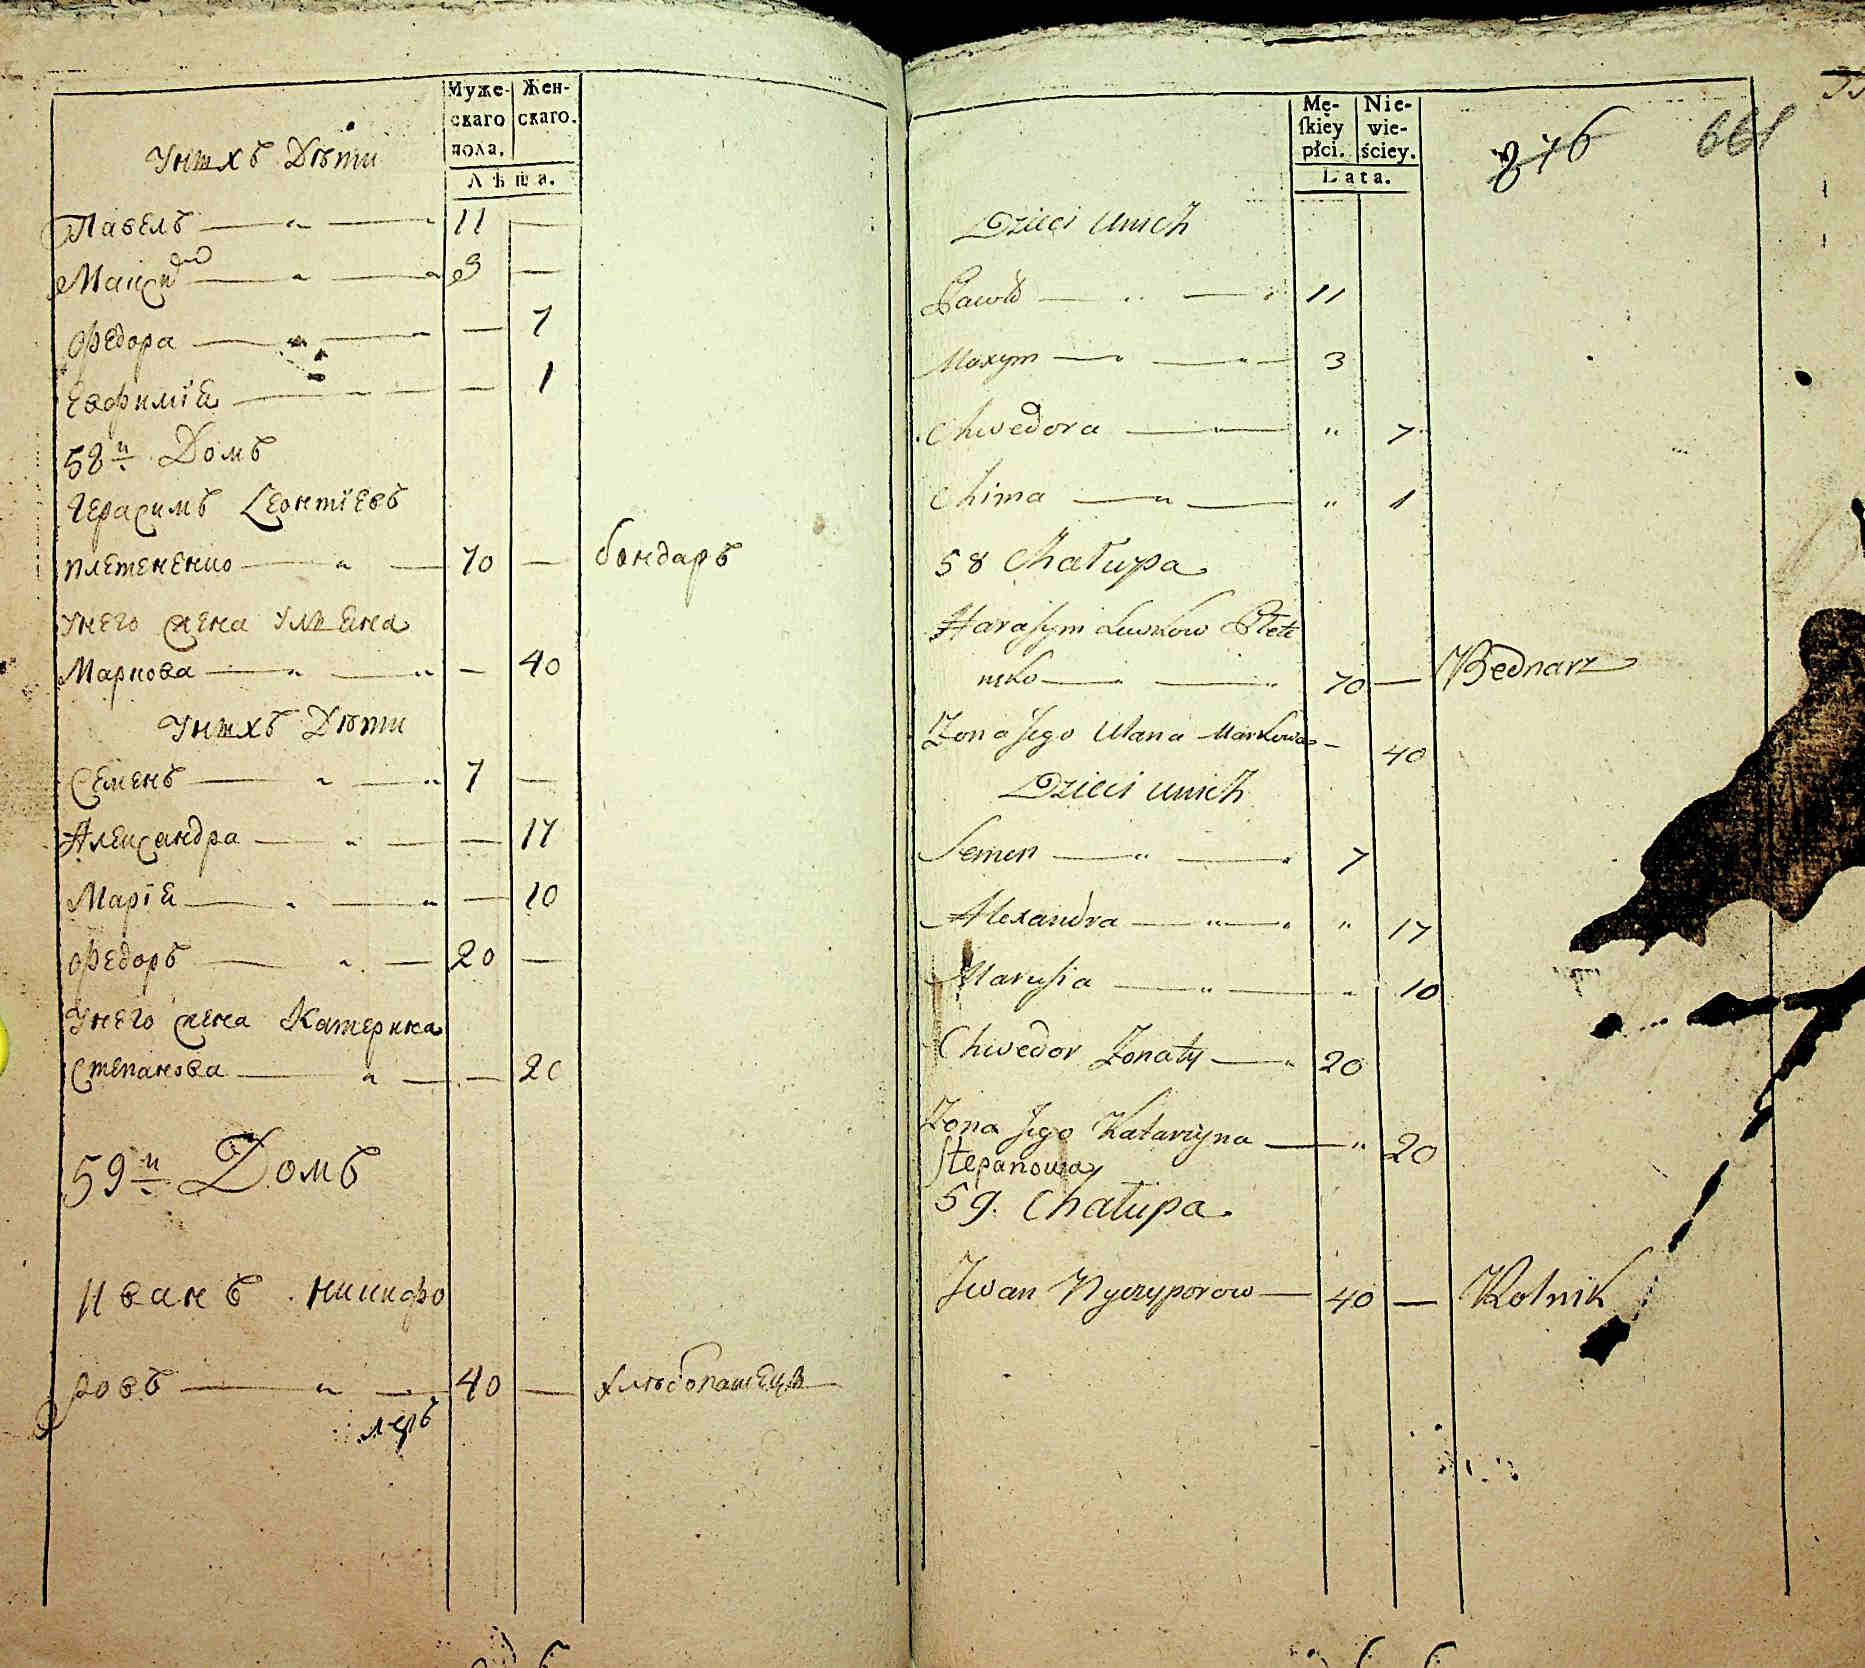 Муже-
скаго
пола.
Жен-
скаго.
Лѣта.
Унихъ Дѣти
Павелъ 11 —
Максим 3 —
Федора — 7
Евфимія — 1
58й Домъ
Герасимъ Леонтіевъ
плетененко 70 — бондаръ
Унего жена Улияна
Маркова — 40
Унихъ Дѣти
Семенъ 7 —
Александра — 17
Марія — 10
Федоръ 20 —
Унего жена Катерина
Степанова — 20
59й Домъ
Иванъ никифо
ровъ 40 — хлѣбопашецъ
леръ
Mę-
ſkiey
płci.
Nie-
wie-
ściey.
Lata.
876
661
Dzieci unich
Pawło 11
Maxym 3
Chwedora " 7
Chima " 1
58 Chałupa
Harasym Lewkow Plete
nko 70 — Bednarz
Zona Jego Ulana Markowa — 40
Dzieci unich
Semen 7
Alexandra " 17
Marusia " 10
Chwedor Zonaty 20
Zona Jego Katarzyna " 20
Stepanowa
59. Chałupa
Jwan Nyczyporow 40 — Rolnik